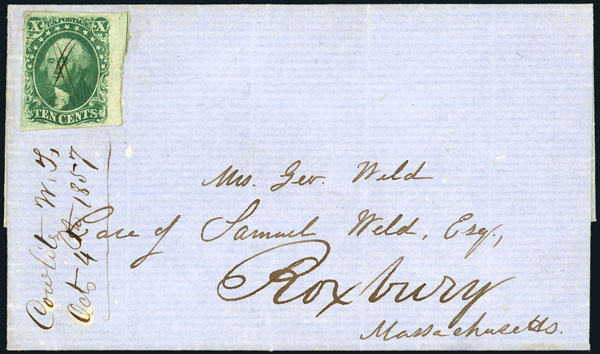 X U.S. POSTAGE X
TEN CENTS
Cowlitz W.T,
Oct 4th 1857
Mrs. Geo. Weld
Care of Samuel Weld, Esq.,
Roxbury
Massachusetts.